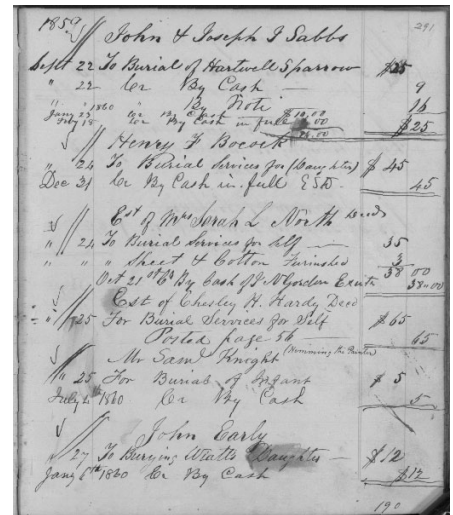 1859 291
John & Joseph J Sabbs
Sept 22 To Burial of Hartwell Sparrow $25
" 22 Cr By Cash 9
" " " By Note 16
Jany 23 1860 Cr By Cash $10.00
Feby 18 Cr By Cash in full .00 $25
Henry F Bocock
" 24 To Burial Services for (Daughter) $45
Dec 31 Cr By Cash in full ESD. 45
Est of Mrs Sarah L North Decd
" 24 To Burial Services for Self 35
" " " Sheet & Cotton Furnished 3
38 00
Oct 21st Cr By Cash of J N Gordon Exectr 38.00
Est of Chesley H. Hardy Decd
" 25 For Burial Services for Self $65
Posted page 56 65
Mr Saml Knight (Hemming the Painter)
" 25 For Burial of Infant $5
July 4th 1860 Cr By Cash 5
John Early
" 27 To Burying Daughter $12
Jany 6th 1860 Cr By Cash $12
190